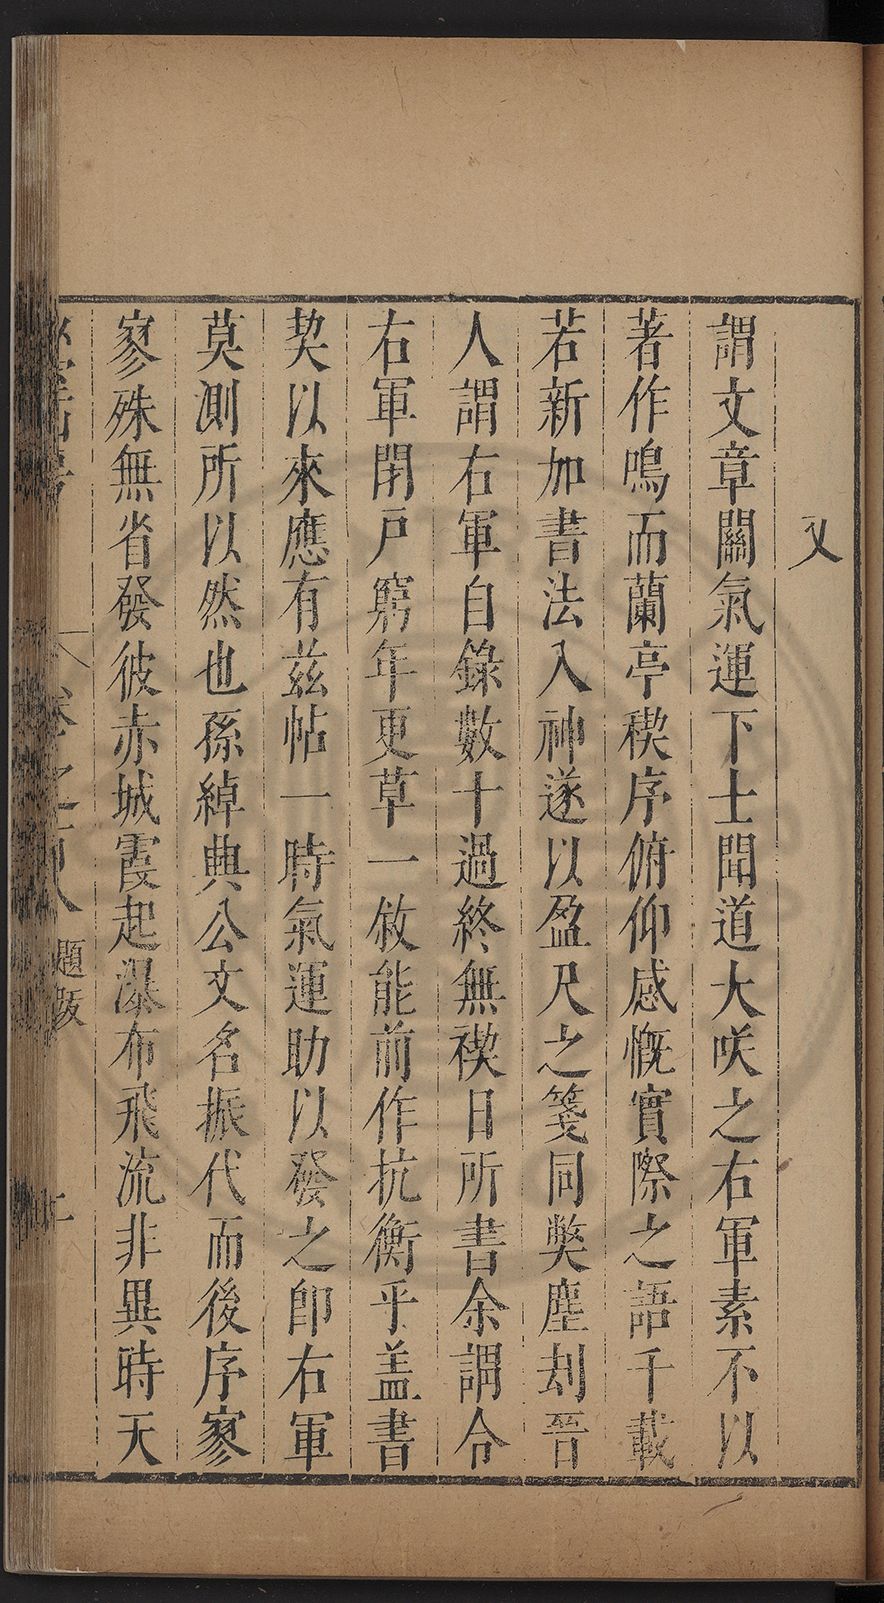 又
謂文章關氣運下士聞道大咲之右軍素不以
著作鳴而蘭亭稧序俯仰感慨實際之語千載
若新加書法入神遂以盈尺之箋同弊塵刦晉
人謂右軍自錄數十過終無禊日所書余謂令
右軍閉戶窮年更草一敘能前作抗衡乎盖書
契以來應有茲帖一時氣運助以發之卽右軍
莫測所以然也孫綽興公文名振代而後序寥
寥殊無省發彼赤城霞起瀑布飛流非異時天
卷之 題跋